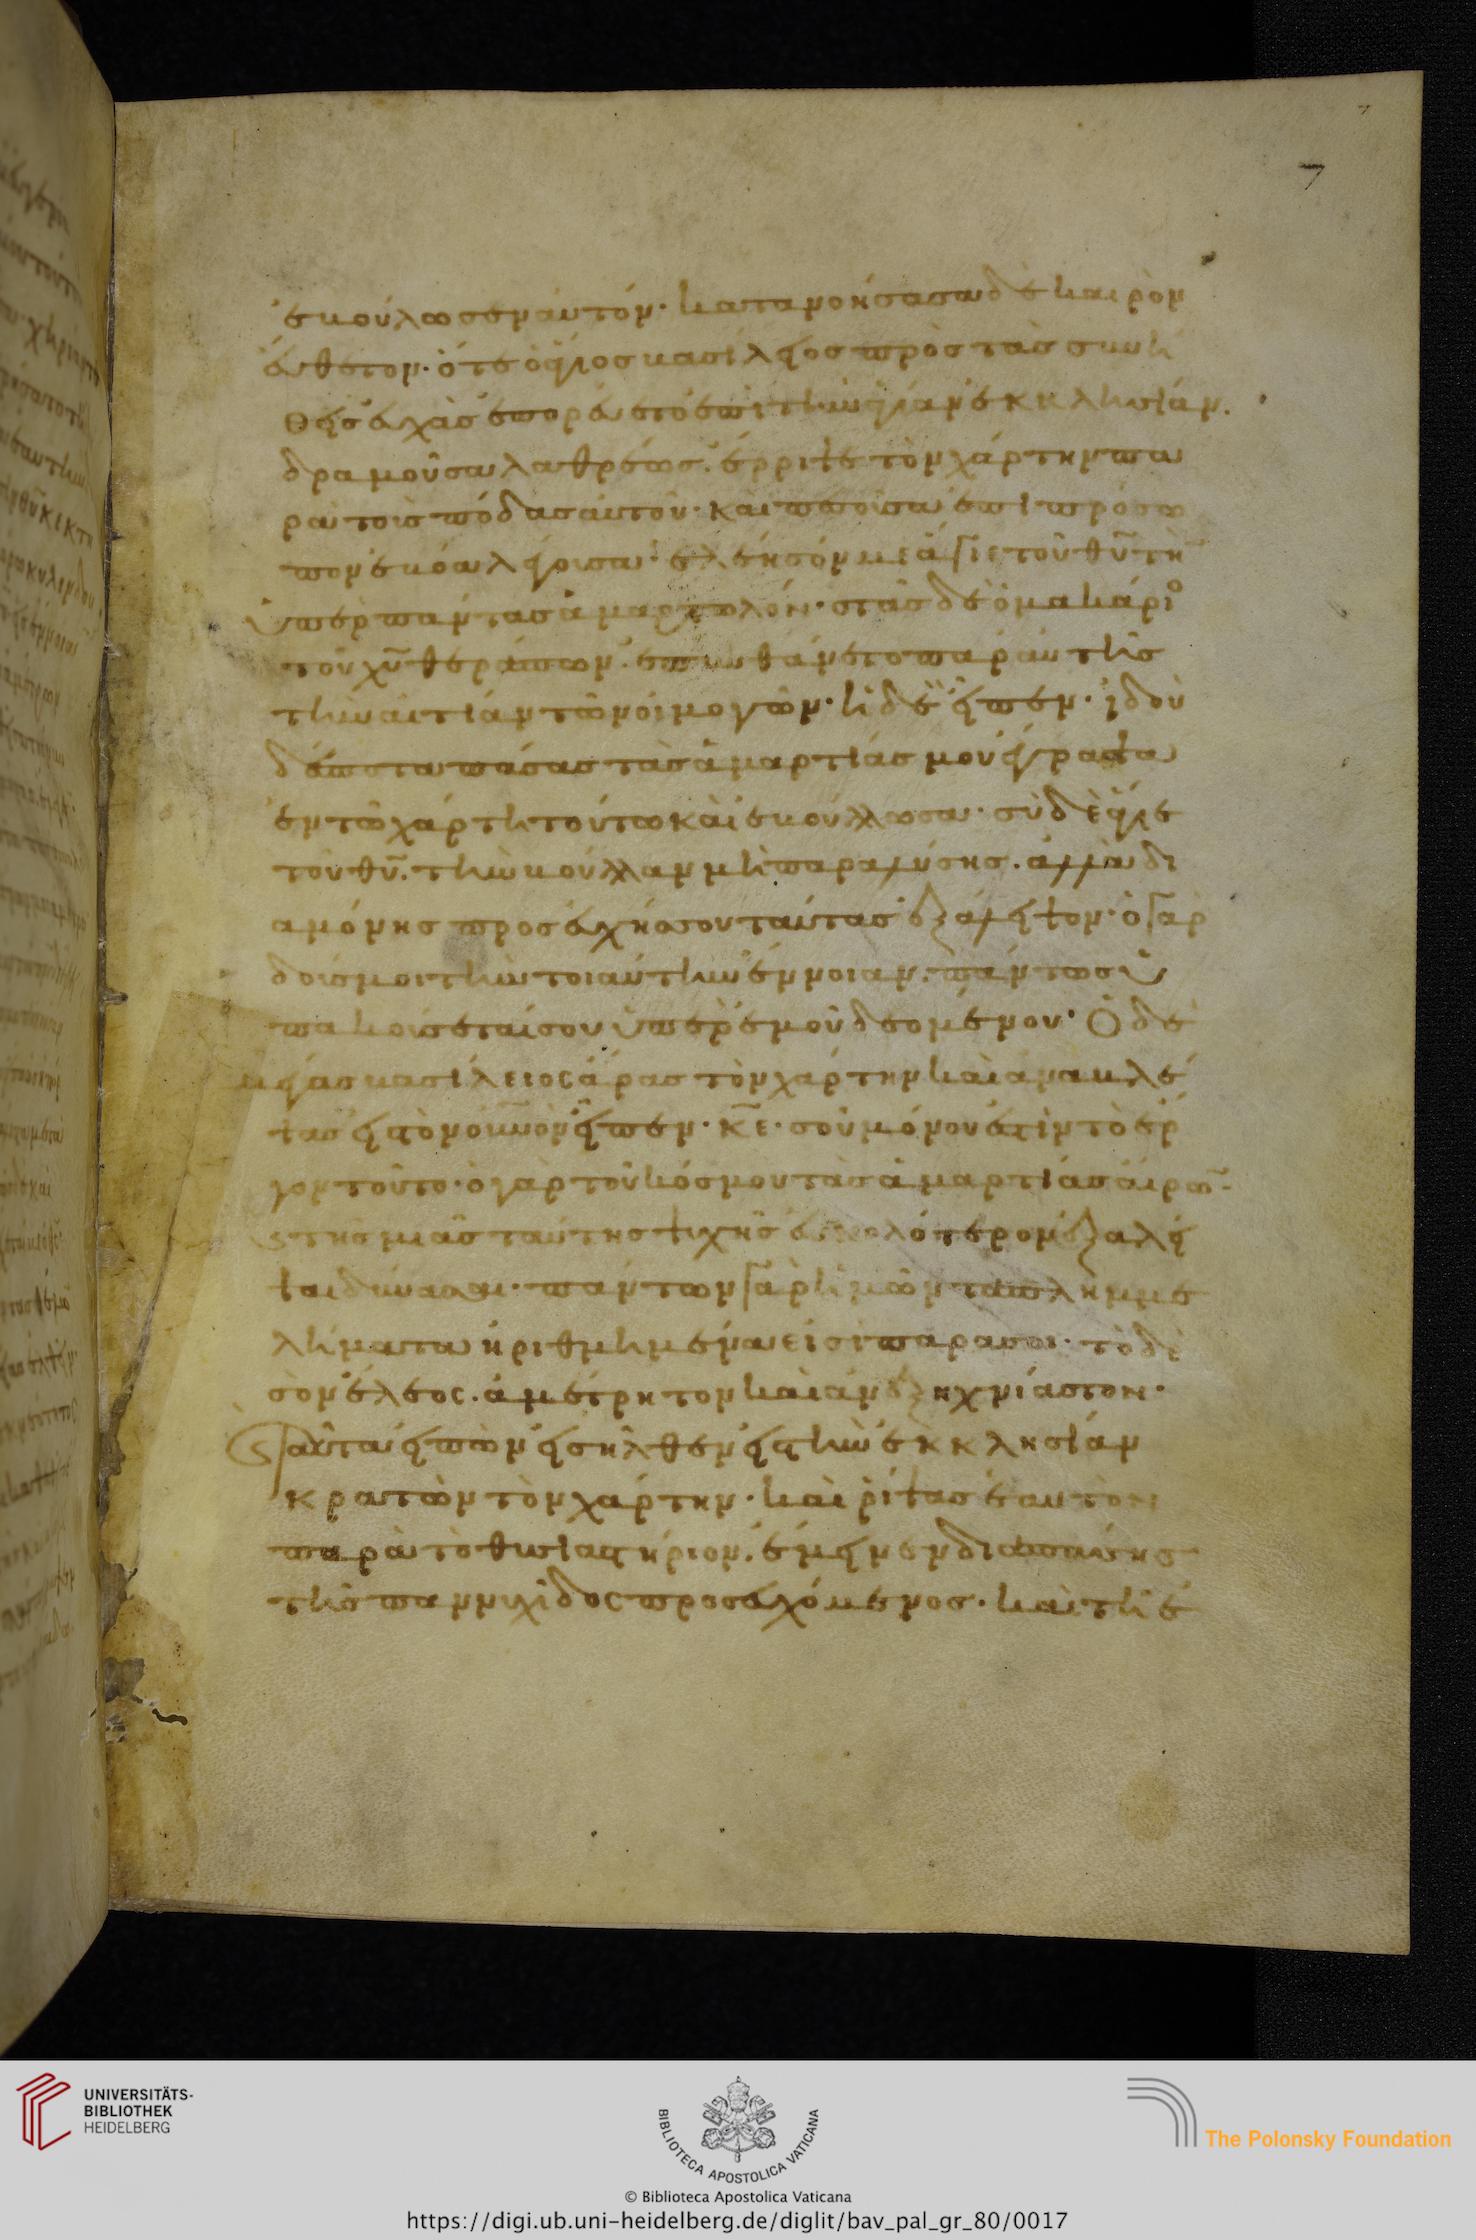 7
7
ἐβούλωσεν αὐτόν· κατανοήσασα δὲ καιρὸν
εὔθετον· ὅτε ὁ ἅγιος βασίλειος πρὸς τὰς συνή
θεις εὐχὰς ἐπορεύετο ἐπὶ τὴν ἁγίαν ἐκκλησίαν.
δραμοῦσα λαθρέως· ἔρριψε τὸν χάρτην πα
ρὰ τοὺς πόδας αὐτοῦ· καὶ πεσοῦσα ἐπὶ πρόσω
πον ἐβόα λέγουσα· ἐλέησόν με ἅγιε τοῦ θῦ τὴν
ὑπὲρ πάντας ἁμαρτωλόν· στὰς δὲ ὁ μακάριος
τοῦ χῦ θεράπων· ἐπυνθάνετο παρ' αὐτῆς
τὴν αἰτίαν τῶν οἰμογῶν· ἡ δὲ εἶπεν· ἰδοὺ
δέσποτα πάσας τὰς ἁμαρτίας μου ἔγραψα
ἐν τῶ χάρτη τούτω καὶ ἐβούλλωσα· σὺ δὲ ἅγιε
τοῦ θῦ. τὴν βούλλαν μὴ παραλύσης. ἀλλὰ δι
αμόνης προσευχῆς σου ταύτας ἐξάλειψον· ὁ γὰρ
δούς μοι τὴν τοιαύτην ἔννοιαν. πάντως ὑ
πακούσεταί σου ὑπὲρ ἐμοῦ δεομένου· Ὁ δὲ
μέγας βασίλειος ἄρας τὸν χάρτην καὶ ἀναβλέ
ψας εἰς τὸν οὐνὸν εἶπεν· κε· σοῦ μόνου ἐστὶν τὸ ἔρ
γον τοῦτο· ὁ γὰρ τοῦ κόσμου τὰς ἁμαρτίας αἴρων
τῆς μιᾶς ταύτης ψυχῆς εὐκολότερον ἐξαλεῖ
ψαι δύνασαι· πάντων γὰρ ἡμῶν τὰ πλημμε
λήματα ἠριθμημένα εἰσὶ παρὰ σοι· τὸ δὲ
σὸν ἔλεος. ἀμέτρητον καὶ ἀνεξιχνίαστον·
ταῦτα εἰπὼν εἰσῆλθεν εἰς τὴν ἐκκλησίαν
κρατῶν τὸν χάρτην· καὶ ῥίψας ἑαυτὸν
παρὰ τὸ θυσιαστήριον. ἔμεινεν διὰ πάσης
τῆς παννυχίδος προσευχόμενος· καὶ τῆ ἑ
UNIVERSITÄTS-
BIBLIOTHEK
HEIDELBERG
BIBLIOTECA APOSTOLICA VATICANA
The Polonsky Foundation
© Biblioteca Apostolica Vaticana
https://digi.ub.uni-heidelberg.de/diglit/bav_pal_gr_80/0017